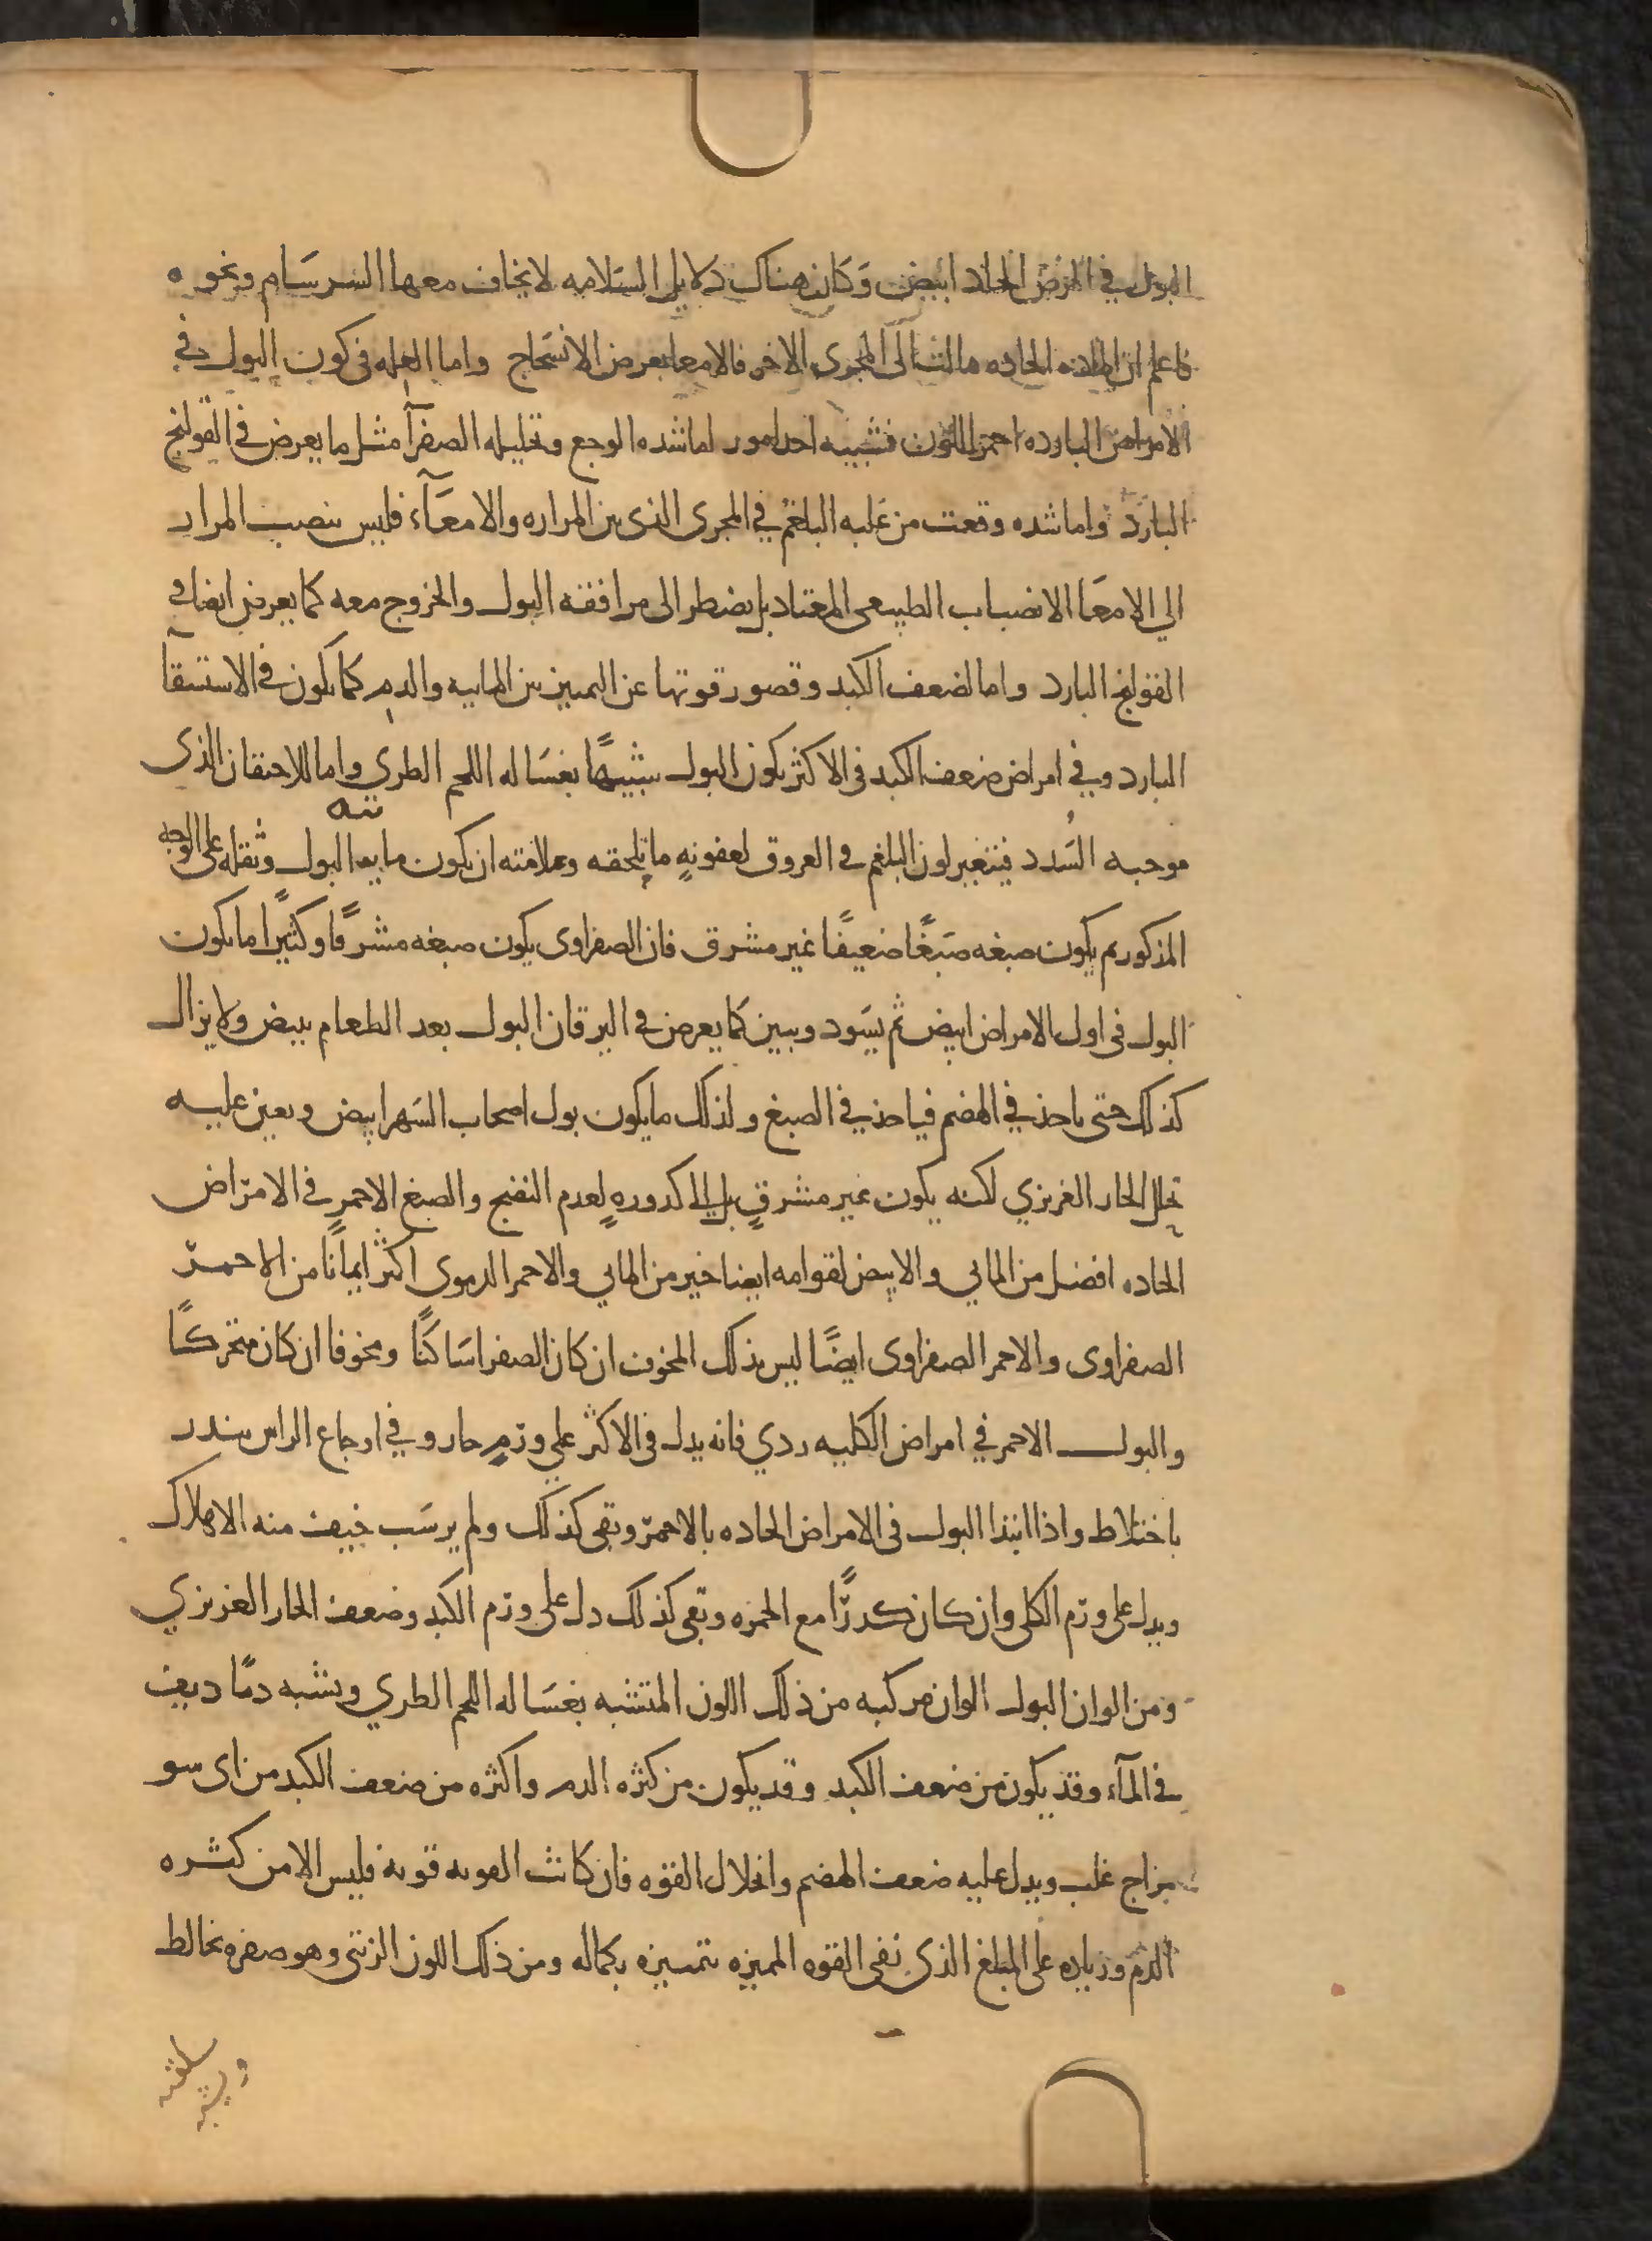 البول في المرض الحاد ابيض وَكَان هناك دلايل السَلامه لا يخاف معها السرسَام ونحوه
فاعلم ان الماده الحاده مالت الى المجرى الاخر فالامعا يعرض الانسَحاج واما العله فى كون البول في
الامراض البارده احمر اللون فسببه احد امور اما شده الوجع وتحليله الصفرآ مثل ما يعرض في القولنج
البارد واما شده وقعت من غلبه البلغم في المجرى الذى بين المراره والامعَآء فليس ينصب المرار
الي الامعَا الانصباب الطبيعى المعتاد بل يضطر الى مرافقه البول والخروج معه كما يعرض ايضا في
القولنج البارد واما لضعف الكبد وقصور قوتها عن التمييز بين المايیه والدم كما يكون في الاستسقآ
البارد وفي امراض ضعف الكبد فى الاكثر يكون البول شبيهًا بغسَاله اللحم الطري واما للاحتقان الذى
موجبه السُدد فيتغير لون البلغم في العروق لعفونهٍ ما تلحقه وعلامته ان يكون مايیه البول وثقله على الوجه
المذكور ثم يكون صبغه صَبغًا ضعيفًا غير مشرق فان الصفراوى يكون صبغه مشرقًا وكثيرًا ما يكون
البول فى اول الامراض ابيض ثم يسَود وينتن كما يعرض في اليرقان البول بعد الطعام يبيض ولا يزال
كذلك حتى ياخذ في الهضم فياخذ في الصبغ ولذلك ما يكون بول اصحاب السَهر ابيض ويعين عليه
تحلل الحار الغريزي لكنه يكون غير مشرقٍ بل الى كدورهٍ لعدم النضج والصبغ الاحمر في الامرَاض
الحاده افضل من المائي والابيض لقوامه ايضا خير من المائي والاحمر الدموى اكثر ايمانًا من الاحمر
الصفراوى والاحمر الصفراوى ايضًا ليس بذلك المخوف ان كان الصفرا سَاكنًا ومخوفا ان كان متحركًا
والبول الاحمر في امراض الكليه ردي فانه يدل فى الاكثر علي ورمٍ حار وفي اوجاع الراس ينذر
باختلاط واذا ابتدا البول فى الامراض الحاده بالاحمر وبقى كذلك ولم يرسَب خيف منه الاهلاك
ويدل على ورم الكلى وان كان كدرًا مع الحمره وبقى كذلك دل على ورم الكبد وضعف الحار الغريزي
ومن الوان البول الوان مركبه من ذلك اللون المتشبه بغسَاله اللحم الطري ويشبه دمًا ديف
في المآء وقد يكون من ضعف الكبد وقد يكون من كثره الدم واكثره من ضعف الكبد من اى سو
مزاج غلب ويدل عليه ضعف الهضم وانحلال القوه فان كانت القوه قويه فليس الا من كثره
الدم وزياده على المبلغ الذى تفى القوه المميزه بتمييزه بكماله ومن ذلك اللون الزيتى وهو صفره تخالط